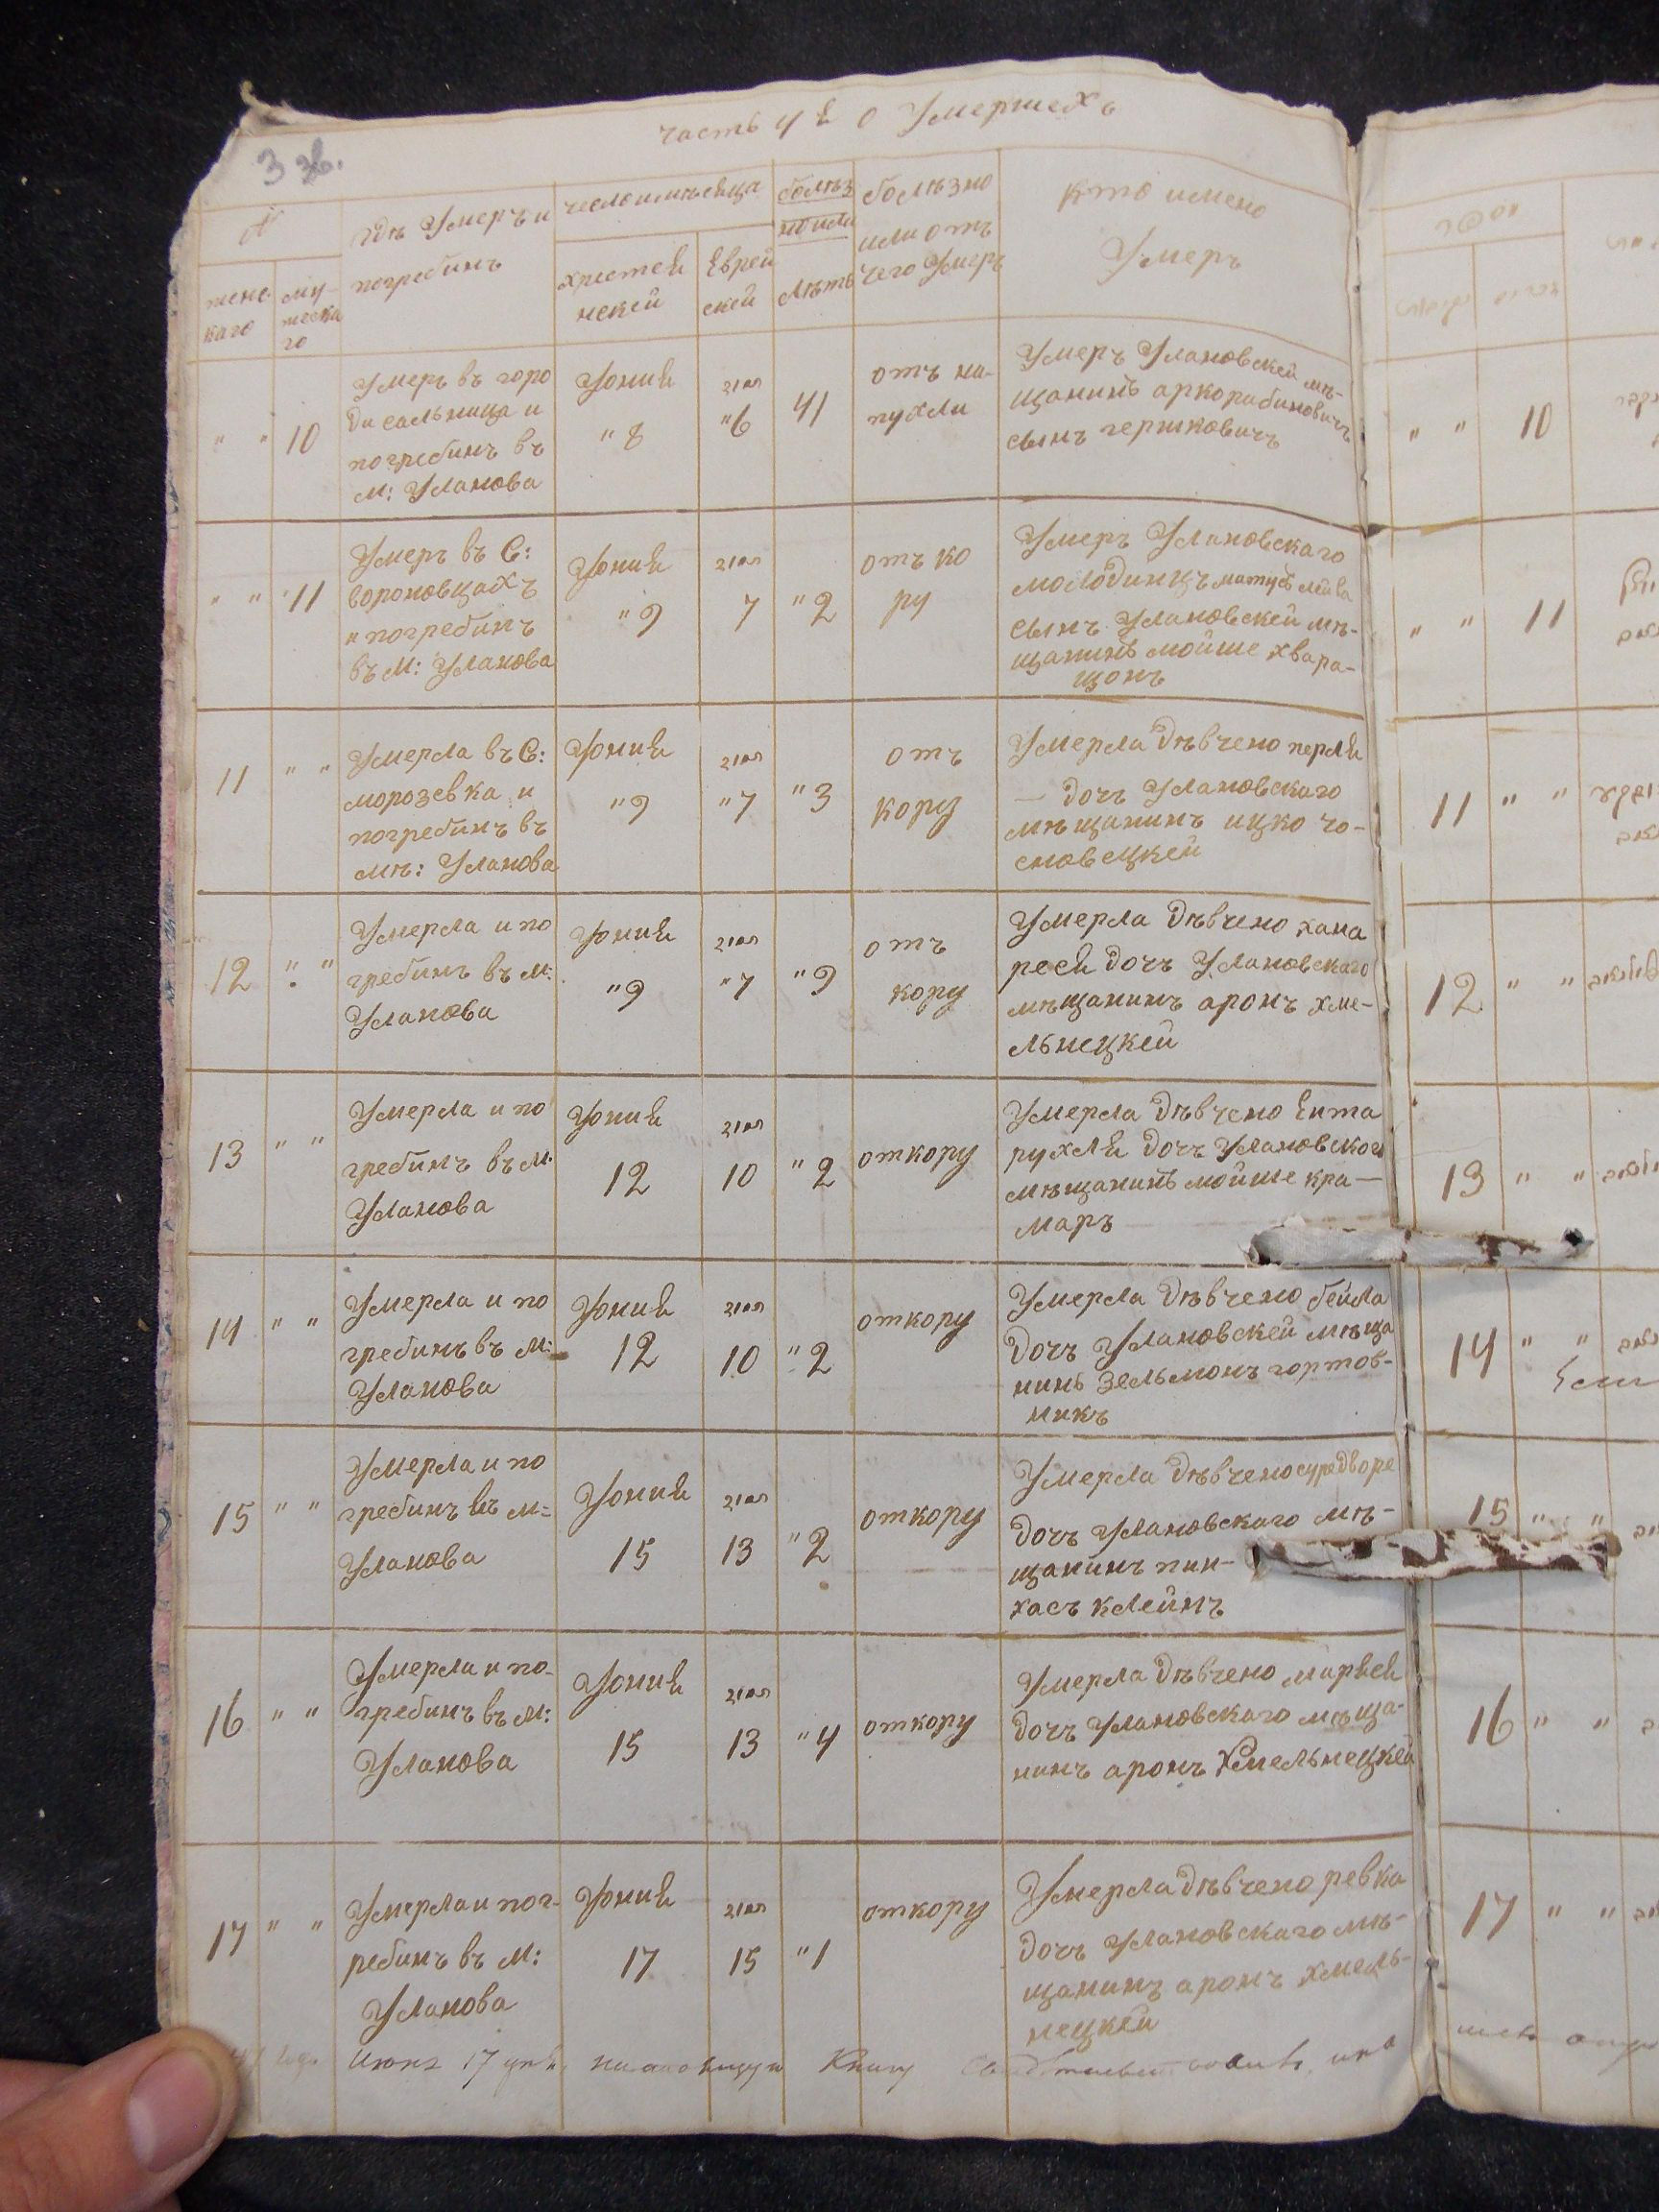 3 зв.
часть 4 Я о Умершехъ
№
гдѣ Умеръ и
погребинъ
число и мѣсяца
болѣз
но или
болѣзно
или отъ
чего Умеръ
кто имено
Умеръ
женс
каго
му-
жеска
го
христей
нскей
Еврей
скей
Лѣтъ
" " 10
Умеръ въ горо
ди сальница и
погребинъ въ
М: Уланова
Юния
" 8
תמוז
"6
41
отъ на-
пухли
Умеръ Улановскей мѣ-
щанинъ
сынъ гершковичъ
" " 11
Умеръ въ С:
вороновцахъ
и погребинъ
въ М: Уланова
Юния
" 9
תמוז
7
"2
отъ ко
ру
Умеръ Улановскаго
молодинцъ матусъ лейва
сынъ Улановскей мѣ-
щанинъ мойше хвара-
щонъ
11 " "
Умерла въ С:
морозевка и
погребинъ въ
мѣ: Уланова
Юния
" 9
תמוז
"7
"3
отъ
кору
Умерла дѣвчено перля
— дочъ Улановскаго
мѣщанинъ ицко чо-
сновецкей
12 " "
Умерла и по
гребинъ въ м:
Уланова
Юния
"9
תמוז
"7
"9
отъ
кору
Умерла дѣвчено хана
рейся дочъ Улановскаго
мѣщанинъ аронъ хме-
льнецкей
13 " "
Умерла и по
гребинъ въ м.
Уланова
Юния
12
תמוז
10
"2
откору
Умерла дѣвчено Ента
рухля дочъ Улановского
мѣщанинъ мойше кра—
маръ
14 " "
Умерла и по
гребинъ въ м:
Уланова
Юния
12
תמוז
10
"2
откору
Умерла дѣвчено бейла
дочъ Улановскей мѣща
нинъ зельмонъ гортов-
никъ
15 " "
Умерла и по
гребинъ въ м:
Уланова
Юния
15
תמוז
13
"2
откору
Умерла дѣвчено суредворе
дочъ Улановскаго мѣ-
щанинъ пин-
хасъ клейнъ
16 " "
Умерла и по-
гребинъ въ м:
Уланова
Юния
15
תמוז
13
"4
откору
Умерла дѣвчено
дочъ Улановскаго мѣща-
нинъ аронъ Хмельнецкей
17 " "
Умерла и пог-
ребинъ въ м:
Уланова
Юния
17
תמוז
15
"1
откору
Умерла дѣвчено ревка
дочъ Улановскаго мѣ-
щанинъ аронъ хмель-
нецкей
Июня 17 дня Книгу
" " 10
" " 11
11 " "
12 " "
13 " "
14 " "
15 " "
16 " "
17 " "